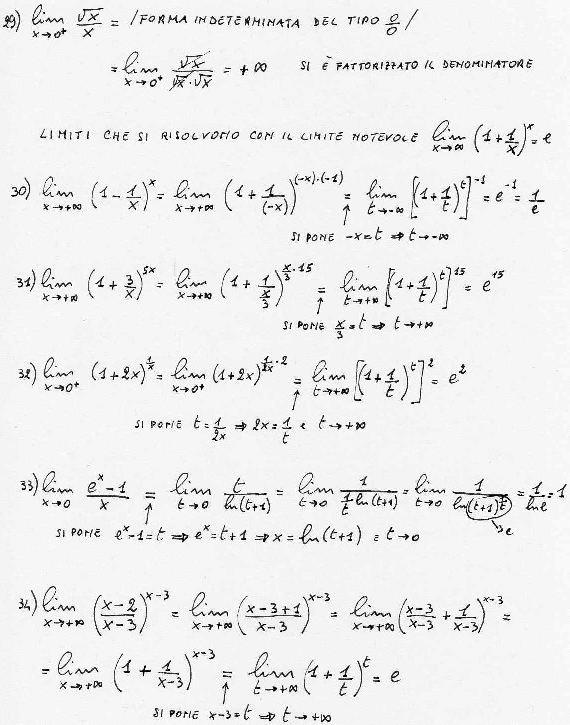 29) lim x→0⁺ √x/x = /FORMA INDETERMINATA DEL TIPO 0/0 /
= lim x→0⁺ √x/(√x·√x) = +∞ SI È FATTORIZZATO IL DENOMINATORE
LIMITI CHE SI RISOLVONO CON IL LIMITE NOTEVOLE lim x→∞ (1+1/x)^x = e
30) lim x→+∞ (1-1/x)^x = lim x→+∞ (1+1/(-x))^((-x)·(-1)) = lim t→-∞ [(1+1/t)^t]^-1 = e^-1 = 1/e
SI PONE -x=t ⇒ t→-∞
31) lim x→+∞ (1+3/x)^5x = lim x→+∞ (1+1/(x/3))^(x/3·15) = lim t→+∞ [(1+1/t)^t]^15 = e^15
SI PONE x/3=t ⇒ t→+∞
32) lim x→0⁺ (1+2x)^(1/x) = lim x→0⁺ (1+2x)^(1/2x·2) = lim t→+∞ [(1+1/t)^t]^2 = e^2
SI PONE t=1/2x ⇒ 2x=1/t e t→+∞
33) lim x→0 (e^x-1)/x = lim t→0 t/ln(t+1) = lim t→0 1/(1/t ln(t+1)) = lim t→0 1/ln(t+1)^(1/t) = 1/ln e = 1
→e
SI PONE e^x-1=t ⇒ e^x=t+1 ⇒ x=ln(t+1) e t→0
34) lim x→+∞ ((x-2)/(x-3))^(x-3) = lim x→+∞ ((x-3+1)/(x-3))^(x-3) = lim x→+∞ ((x-3)/(x-3) + 1/(x-3))^(x-3) =
= lim x→+∞ (1+1/(x-3))^(x-3) = lim t→+∞ (1+1/t)^t = e
SI PONE x-3=t ⇒ t→+∞